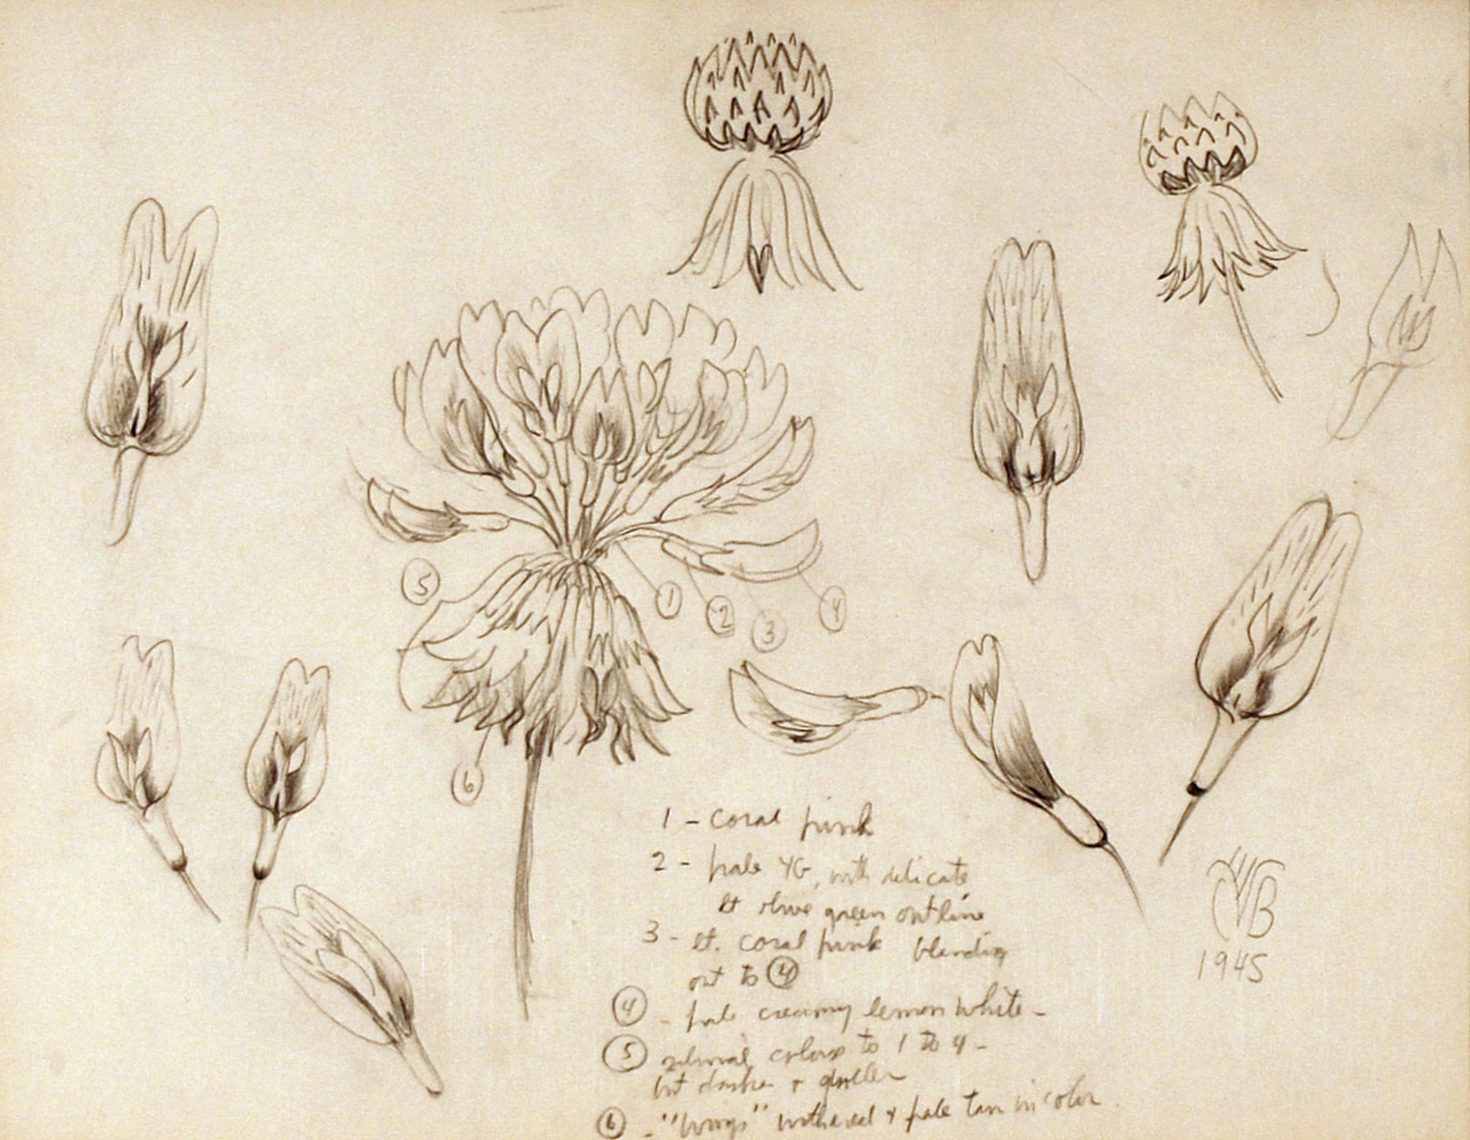 5
1
2
3
4
6
1 - coral pink
2 - pale YG, with delicate
lt olive green outline
3 - lt. coral pink blending
out to 4
4 - pale creamy lemon white -
5 colors to 1 to 4 -
but darker &
6 - "wings" withered & pale tan in color
VVB
1945